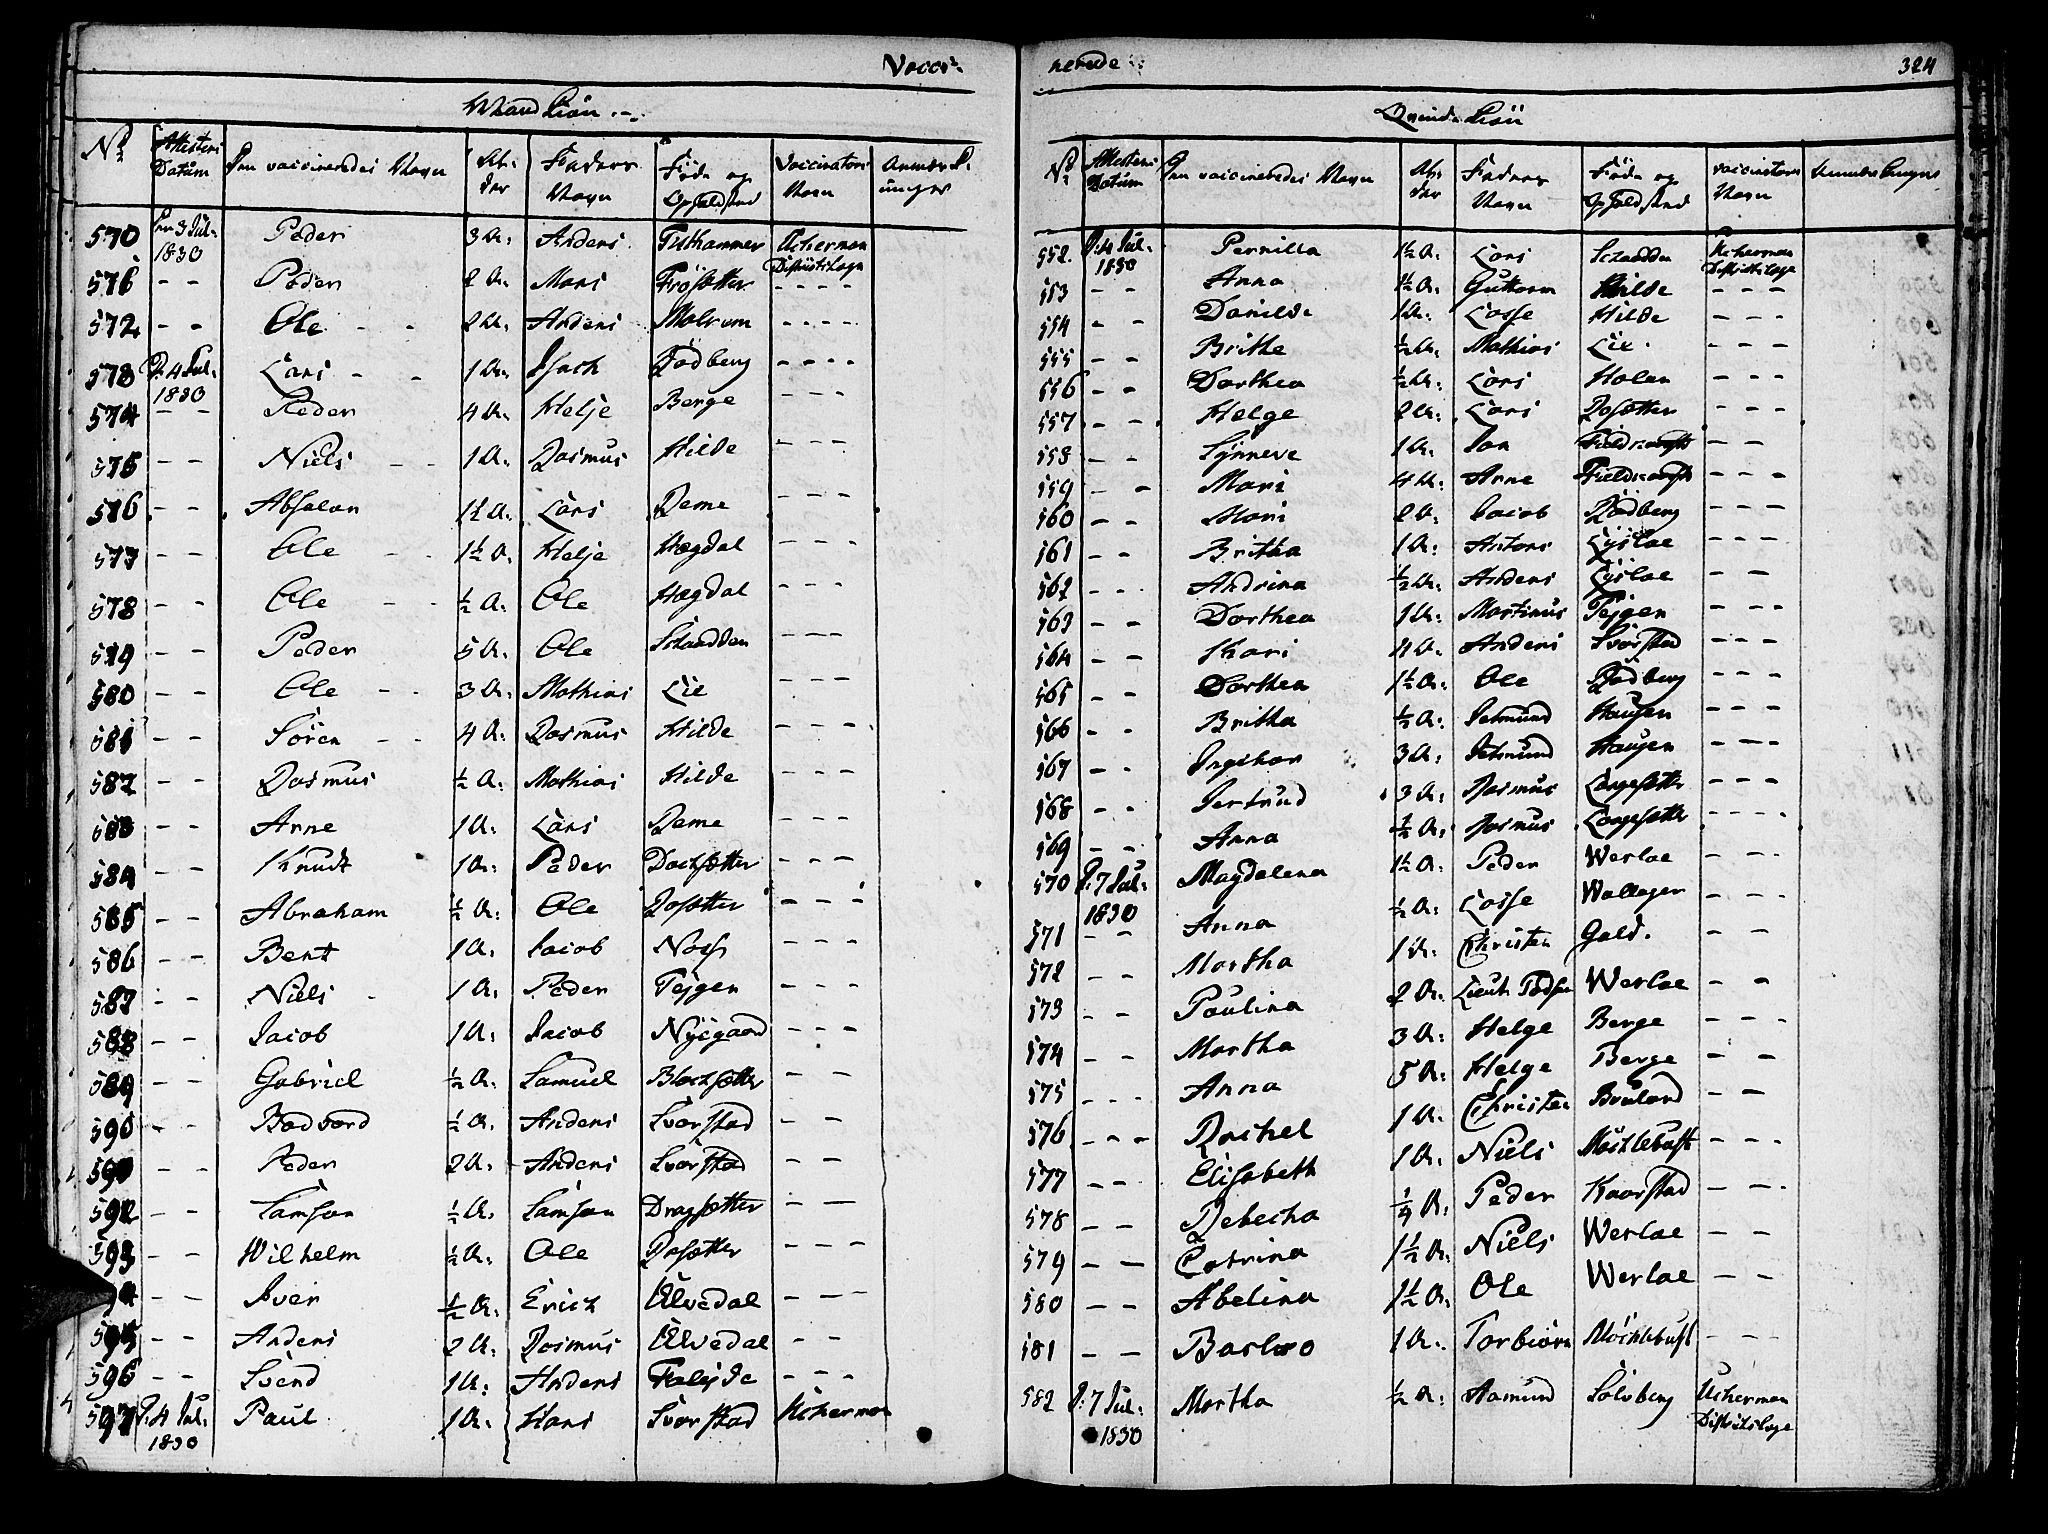 Vacci-
Mand Kiøn.
No Attestens Datum Den vaccineredes Navn Alder Faders Navn Føde og Opholdsted Vaccinators Navn Anmærkninger
570 Den 3 Jul: 1830 Peder 3 A: Anders Tisthammer Ackerman Districtslæge
571 - - Peder 2 A: Mons Frøsætter - - - -
572 - - Ole 2 A: Anders Molrum - - - -
573 D: 4 Jul: 1830 Lars 1 A: Isach Rødberg - - - -
574 - - Peder 4 A: Helje Berge - - -
575 - - Niels 1 A: Rasmus Hilde - - -
576 - - Absalon 1½ A: Lars Reme - - -
577 - - Ole 1½ A: Helje Hægdal - - -
578 - - Ole ½ A: Ole Hægdal - - -
579 - - Peder 5 A: Ole Skaadden - - -
580 - - Ole 3 A: Mathias Lie - - -
581 - - Søren 4 A: Rasmus Hilde - - -
582 - - Rasmus ½ A: Mathias Hilde - - -
583 - - Arne 1 A: Lars Reme - - -
584 - - Knudt 1 A: Peder Dochsætter - - -
585 - - Abraham ½ A: Ole Rosætter - - -
586 - - Bent 1 A: Jacob Noss - - -
587 - - Niels 1 A: Peder Tejgen - - -
588 - - Jacob 1 A: Jacob Nygaard - - -
589 - - Gabriel ½ A: Samuel Blochsætter - - -
590 - - Baadvard ½ A: Anders Svarstad - - -
591 - - Peder 2 A: Anders Svarstad - -
592 - - Samson ½ A: Samson Dragsætter - -
593 - - Wilhelm ½ A: Ole Rosætter - - -
594 Iver ½ A: Erick Ulvedal - - -
595 - - Anders 2 A: Rasmus Ulvedal - -
596 - - Svend 1 A: Anders Faleide - - -
597 D: 4 Jul: 1830 Paul 1 A: Hans Svarstad Ackerman
nerede 324
Qvinde Kiøn
No Attestens Datum Den vaccineredes Navn Alder Faders Navn Føde og Opholdsted vaccinators Navn Anmærkninger
552. D: 4 Jul: 1830 Pernilla 1½ A: Lars Skaadden Ackerman Districtslæge
553 - - Anna 1½ A: Guttorm Hilde - - -
554 - - Danilde 1 A: Lasse Hilde - - -
555 - - Brithe ½ A: Mathias Lie. - - -
556 - - Dorthea ½ A: Lars Holen - - -
557 - - Helge 2 A: Lars Rosætter - - -
558 - - Synneve 1 A: Jon - -
559 - - Mari 4 A: Arne - - -
560 - - Mari 2 A: Jacob Rødberg - - -
561 - - Britha 1 A: Antons Lysloe - - -
562 - - Andrina ½ A: Anders Lysloe - -
563 - - Dorthea 1 A: Martinus Tejgen - - -
564 - - Kari 4 A: Anders Svarstad - - -
565 - - Dorthea 1½ A: Ole Rødberg - - -
566 - - Britha ½ A: Jetmund Haugen - - -
567 - - Ingebor 3 A: Jetmund Haugen - - -
568 - - Jertrud 3 A: Rasmus Langesætter - - -
569 - - Anna ½ A: Rasmus Langesætter - - - -
570 D: 7 Jul: 1830 Magdalena 1½ A: Peder Werloe - - -
571 - - Anna ½ A: Lasse Wallager - - -
572 - - Martha 1 A: Christen Gald. - -
573 - - Paulina 2 A: Lieut: Werloe - -
574 - - Martha 3 A: Helge Berge - - -
575 - - - Anna 5 A: Helge Berge - -
576 - - - Rachel 1 A: Christen - -
577 - - Elisabeth 1 A: Niels Mochlebust - - -
578 - - Rebecha ¼ A: Peder Kaarstad - - -
579 - - Catrina 1½ A: Niels Werloe - - -
580 - - Abelina 1½ A: Ole Werloe - -
581 - - Barbro 1 A: Torbiørn Mochlebust - - -
582 D: 7 Jul: 1830 Martha ½ A: Aamund Solvberg Ackerman Districtslæge